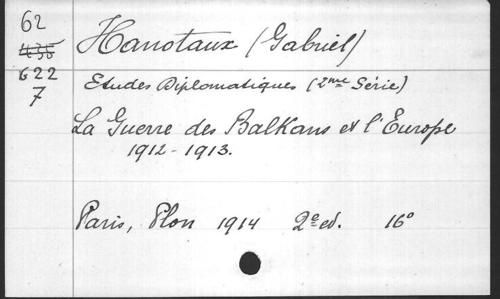 62
436
622
7
Hanotaux (Gabriel)
Etudes Diplomatiques (2me Série)
La Guerre des Balkans et l'Europe
1912-1913.
Paris, Plon 1914 2e ed. 16°